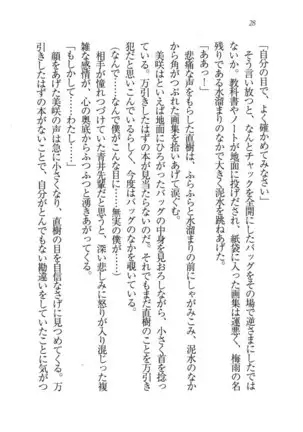 28
「自分の目で、よく確かめてみなさい」
そう言い放つと、なんとチャックを全開にしたバッグをその場で逆さまにしたでは
ないか。教科書やノートが地面に投げだされ、紙袋に入った画集は運悪く、梅雨の名
残りである水溜まりのなかで大きく泥水を跳ねあげた。
「ああっ！」
悲痛な声をあげた直樹は、ふらふらと水溜まりの前にしゃがみこみ、泥水のなか
から角がつぶれた画集を拾いあげて涙ぐむ。
美咲はというと地面にひろがったバッグの中身を見おろしながら、小さく首を捻っ
ている。万引きしたはずの本が見当たらないのだ。それでもまだ直樹のことを万引き
犯だと思いこんでいるらしく、今度はバッグのなかを覗いている。
（なんで……なんで僕がこんな目に……無実の僕が……）
相手が憧れつづけていた青井先輩だと思うと、深い悲しみに怒りが入り混じった複
雑な感情が、心の奥底からふつふつと湧きあがってくる。
「もしかして……わたし……」
顔をあげた美咲の声は急に小さくなり、直樹の目を自信なさげに見つめてくる。万
引きしたはずの本がないことで、自分がとんでもない勘違いをしていたことに気がつ